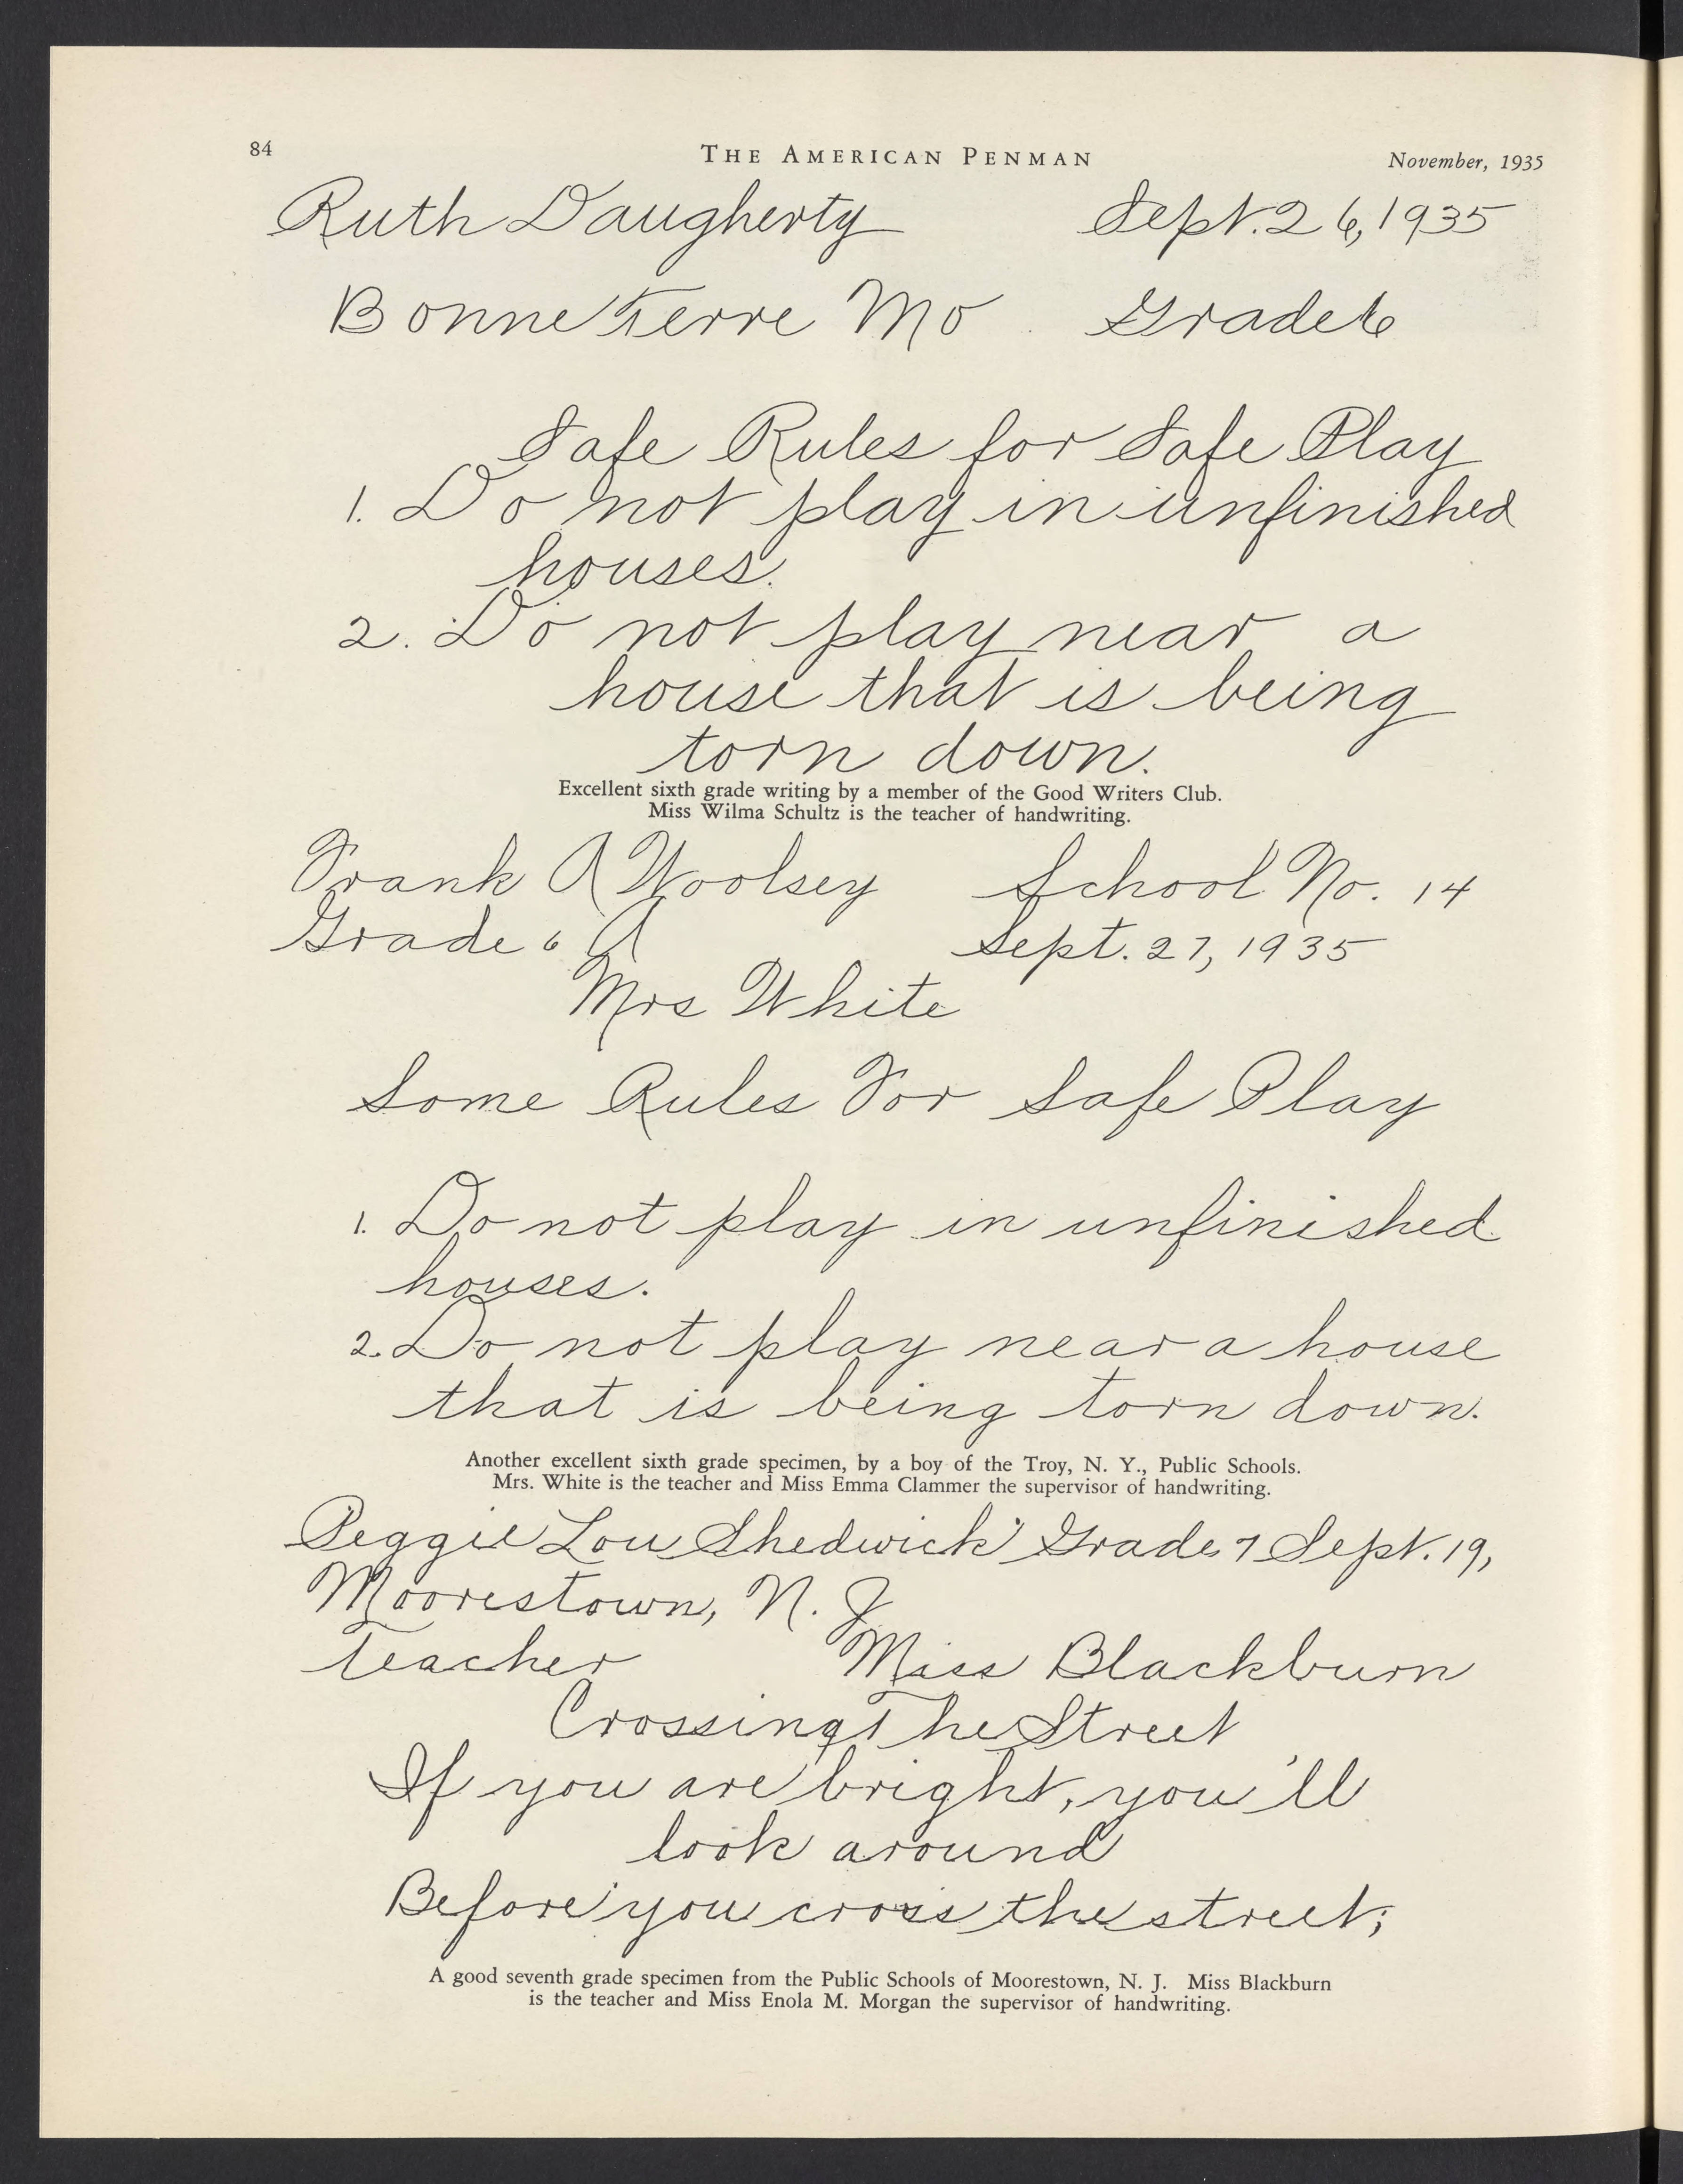 84 THE AMERICAN PENMAN November, 1935
Ruth Daugherty Sept. 26, 1935
Bonne Terre Mo Grade 6
Safe Rules for Safe Play
1. Do not play in unfinished
houses.
2. Do not play near a
house that is being
torn down.
Excellent sixth grade writing by a member of the Good Writers Club.
Miss Wilma Schultz is the teacher of handwriting.
Frank A Woolsey School No. 14
Grade 6 A Sept. 27, 1935
Mrs White
Some Rules For Safe Play
1. Do not play in unfinished
houses.
2. Do not play near a house
that is being torn down.
Another excellent sixth grade specimen, by a boy of the Troy, N. Y., Public Schools.
Mrs. White is the teacher and Miss Emma Clammer the supervisor of handwriting.
Peggie Lou Shedwick Grade 7 Sept. 19,
Moorestown, N. J.
Teacher Miss Blackburn
Crossing The Street
If you are bright, you'll
look around
Before you cross the street;
A good seventh grade specimen from the Public Schools of Moorestown, N. J. Miss Blackburn
is the teacher and Miss Enola M. Morgan the supervisor of handwriting.